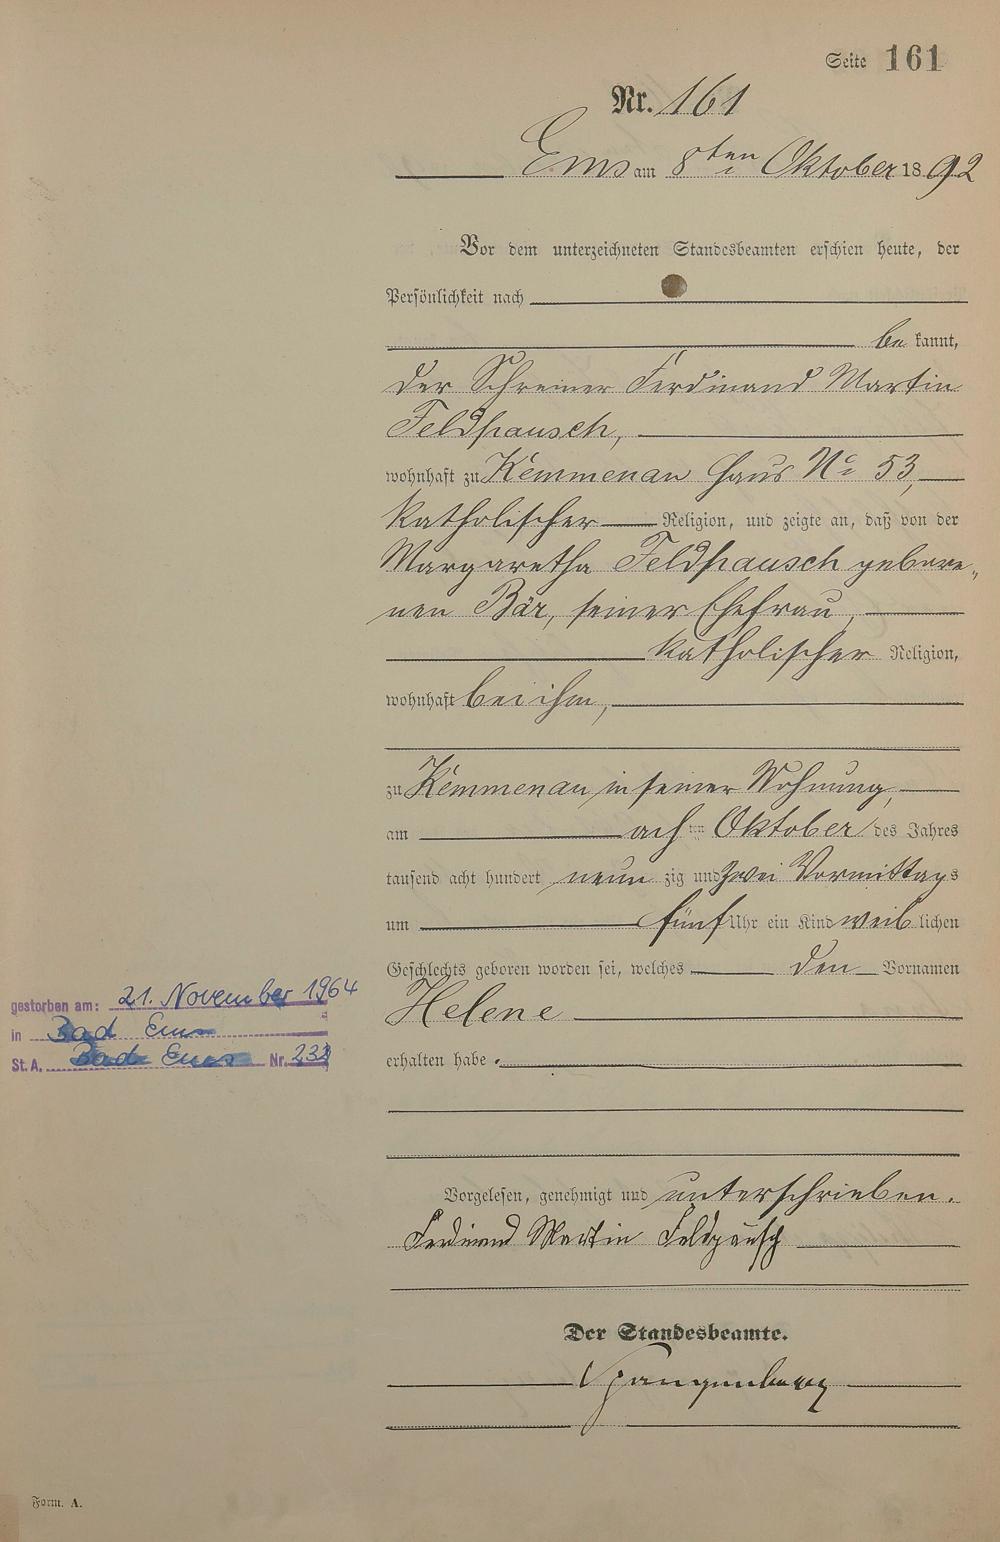 Seite 161
Nr. 161
Ems am 8ten Oktober 1892
Vor dem unterzeichneten Standesbeamten erschien heute, der
Persönlichkeit nach
be kannt,
der Schreiner Ferdinand Martin
Feldpausch,
wohnhaft zu Kemmenau Haus No 53,
katholischer Religion, und zeigte an, daß von der
Margaretha Feldpausch gebore-
nen Bär, seiner Ehefrau,
katholischer Religion,
wohnhaft bei ihm,
zu Kemmenau in seiner Wohnung,
am acht ten Oktober des Jahres
tausend acht hundert neun zig und zwei Vormittags
um fünf Uhr ein Kind weib lichen
Geschlechts geboren worden sei, welches den Vornamen
Helene
erhalten habe.
gestorben am: 21. November 1964
in Bad Ems
St. A. Bad Ems Nr. 232
Vorgelesen, genehmigt und unterschrieben.
Ferdinand Martin Feldpausch
Der Standesbeamte.
Form. A.